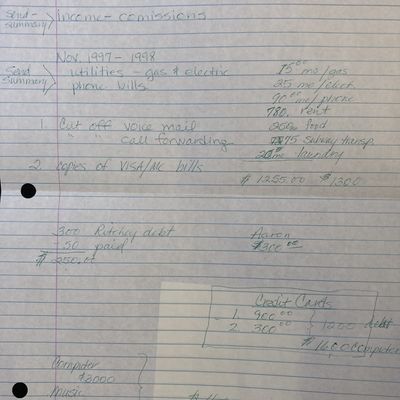 Send - summary > income - comissions
Nov. 1997 - 1998
Send Summary > utilities - gas & electric 15.00 mo/gas
phone bills 25 mo/elect.
90.00 mo/phone
780. rent
1. Cut off voice mail food
" " call forwarding 75 subway transp.
20 mo laundry
2. copies of VISA/MC bills
$ 1255.00 $1300
300 Ritchey debt Aaron
50 paid $300.00
$ 250.00
Credit Cards
1. 900.00
2. 300.00 } 1200 debt
$ 1600 computer
Computer
$2000
Music